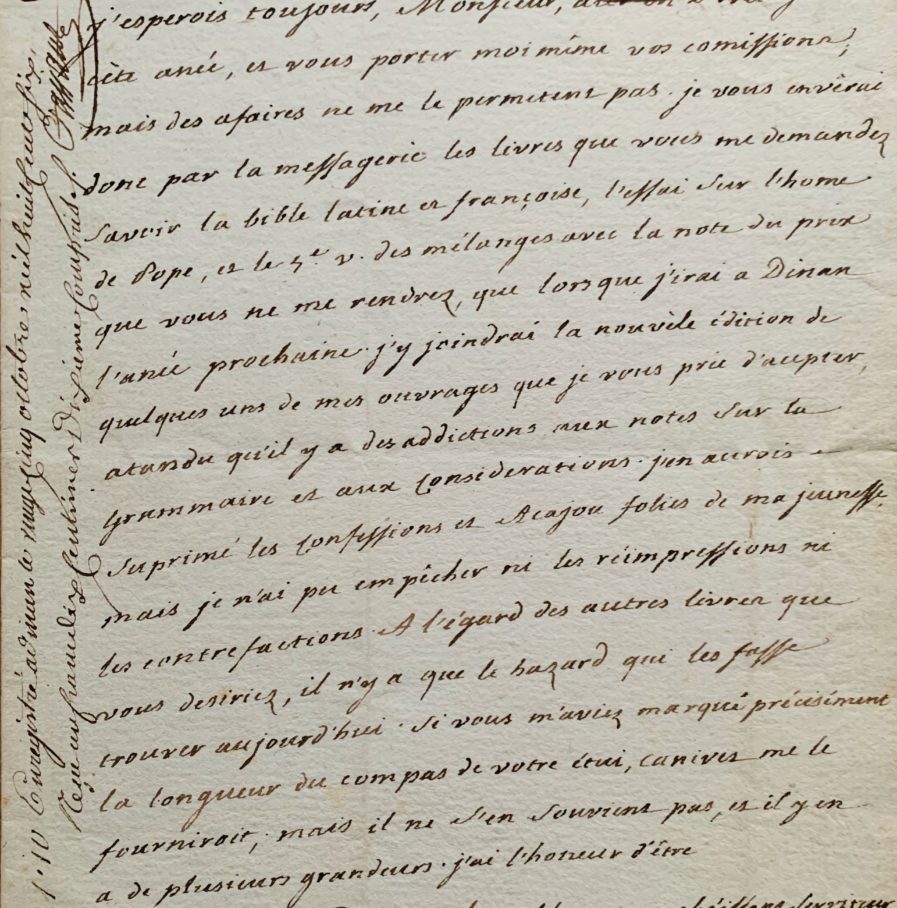 j'esperois toujours, Monsieur,
cète anée, et vous porter moi même vos comissions,
mais des afaires ne me le permetent pas. je vous envêrai
donc par la messagerie les livres que vous me demandez
savoir la bible latine et françoise, l'essai sur l'home
de Pope, et le 5e v. des mélanges avec la note du prix
que vous ne me rendrez, que lorsque j'irai a Dinan
l'anée prochaine. j'y joindrai la nouvèle édition de
quelques uns de mes ouvrages que je vous prie d'acepter,
atandu qu'il y a des addictions aux notes sur la
grammaire et aux considerations. j'en aurois
suprimé les confessions et Acajou folies de ma jeunesse,
mais je n'ai pu empêcher ni les réimpressions ni
les contrefactions. A l'égard des autres livres que
vous desiriez, il n'y a que le hazard qui les fasse
trouver aujourd'hui. si vous m'aviez marqué précisément
la longueur du compas de votre étui, canivet me le
fourniroit, mais il ne s'en souvient pas, et il y en
a de plusieurs grandeurs. j'ai l'honeur d'être
serviteur
f. 10 Enregistré a dinan le vingt cinq octobre mil huit cent six
Reçu un franc dix centimes Dixieme compris.